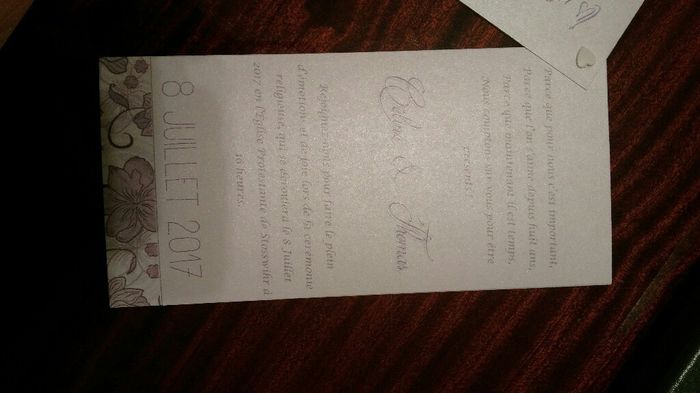 Parce que pour nous c'est important,
Parce que l'on s'aime depuis huit ans,
Parce que maintenant il est temps,
Nous comptons sur vous pour être
présents !
Céline & Thomas
Rejoignez-nous pour faire le plein
d'émotions et de joie lors de la cérémonie
religieuse, qui se déroulera le 8 Juillet
2017 en l'Eglise Protestante de Stosswihr à
16 heures.
8 JUILLET 2017